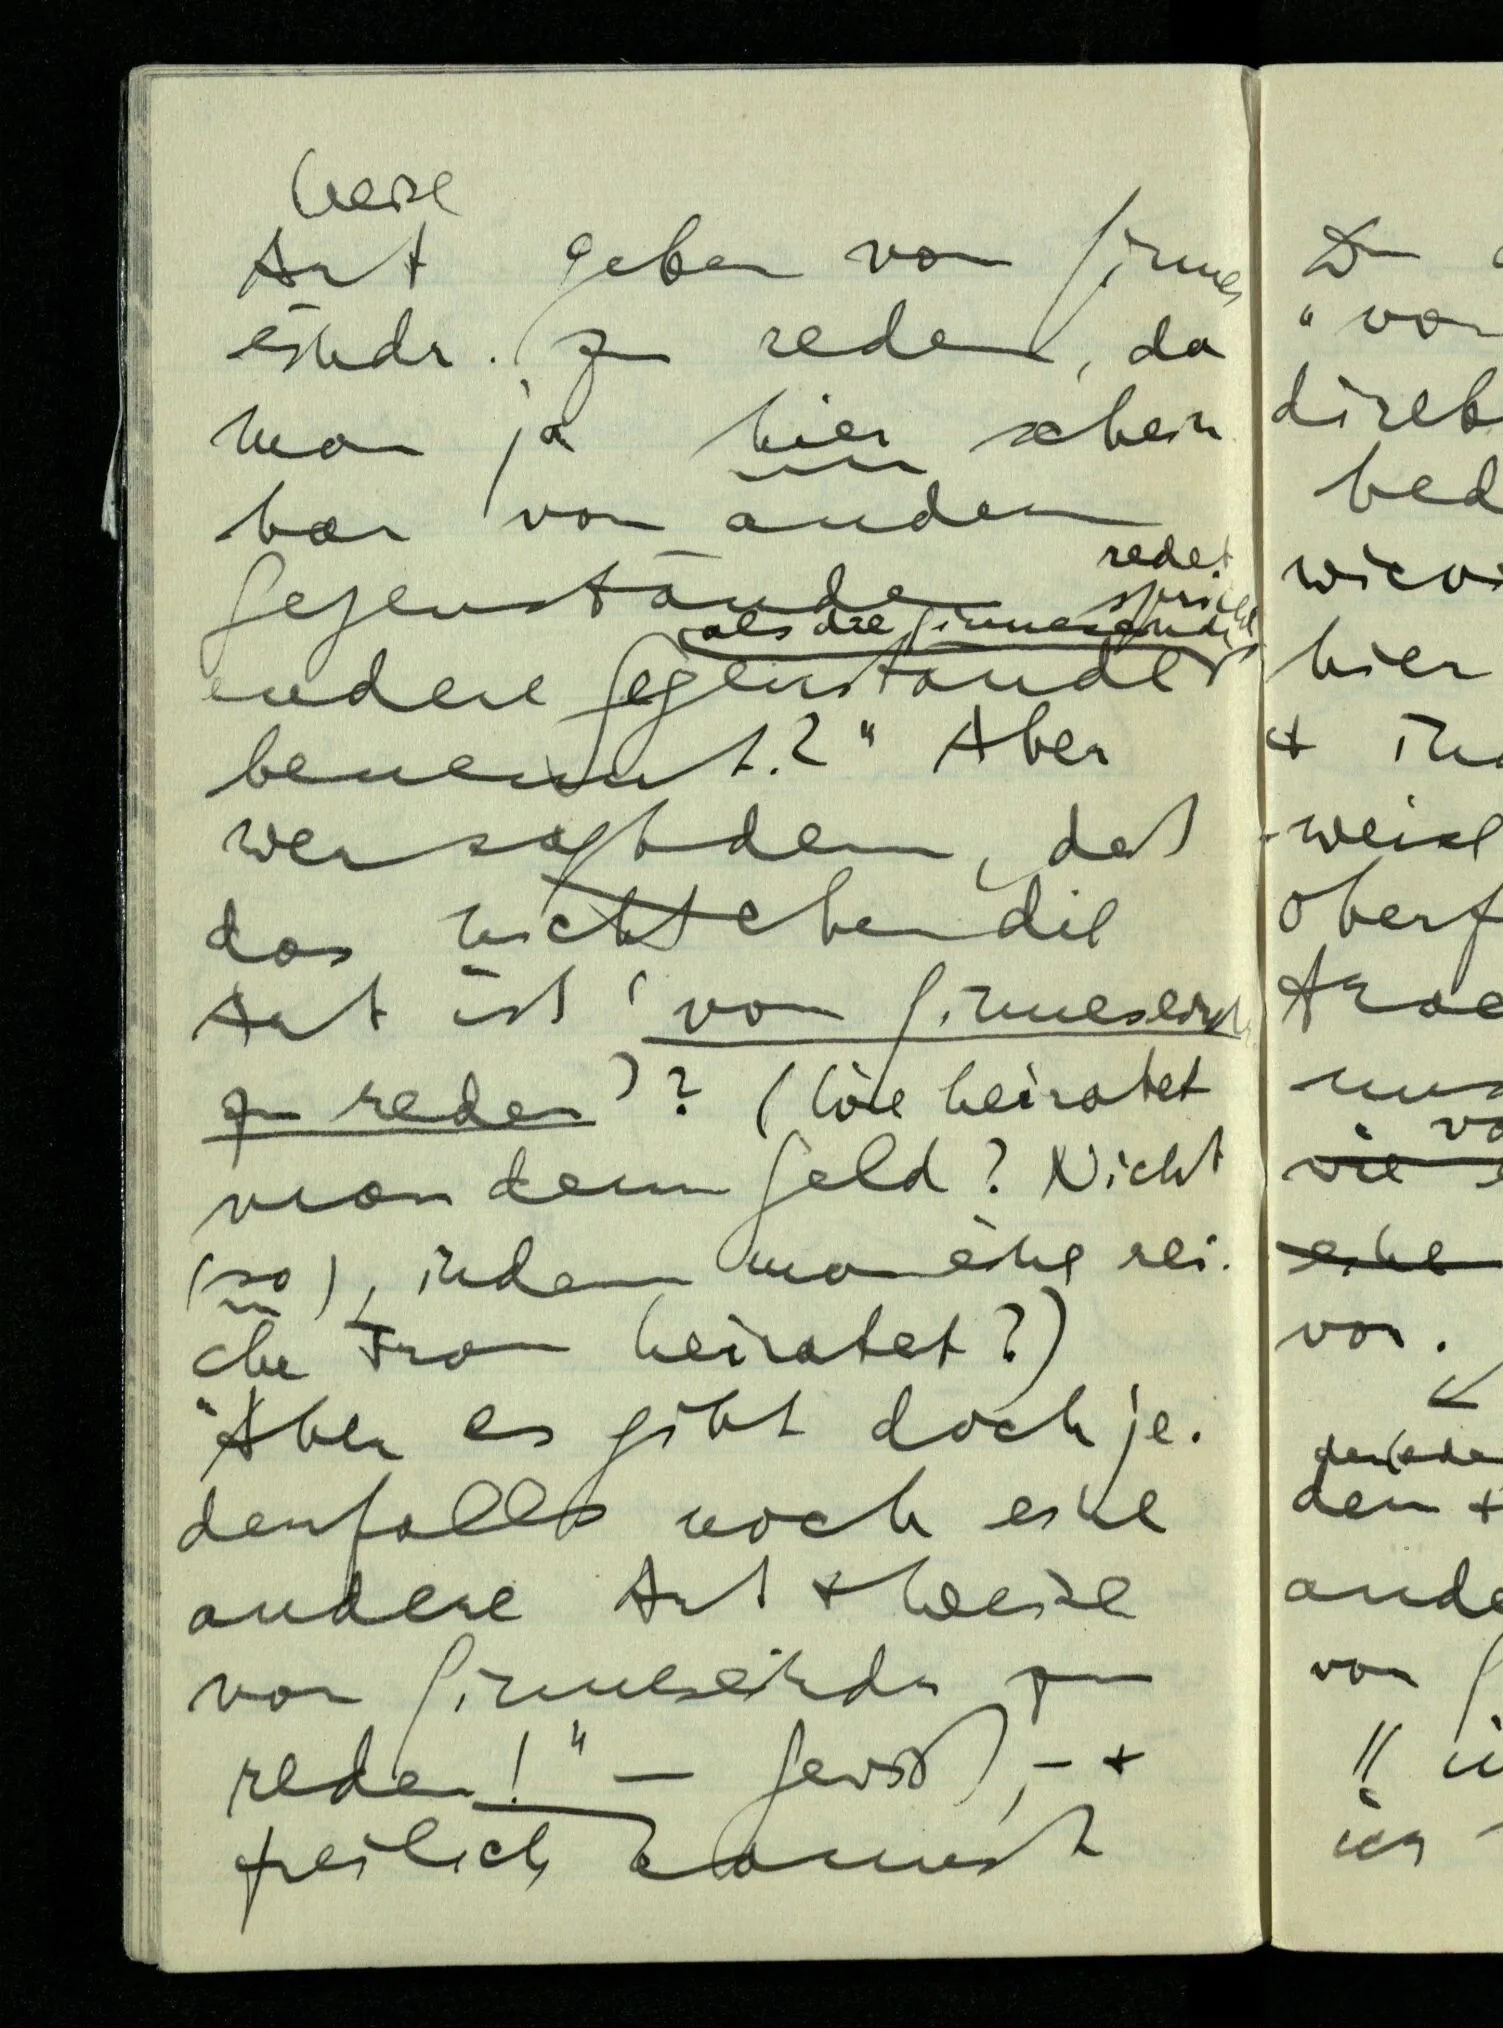 Weise
Art geben von Sinnes
eindr. zu reden, da
man ja hier schein
bar von andern
Gegenständen redet
spricht
als die Sinneseindr
andere Gegenstände
benennt.?" Aber
wer sagt denn, daß
das nicht eben die
Art ist 'von Sinneseindr
zu reden'? (Wie heiratet
man denn Geld? Nicht
(so), indem man eine rei-
che Frau heiratet?)
"Aber es gibt doch je-
denfalls noch eine
andere Art & Weise
von Sinneseindr zu
reden!" — Gewiß, – &
freilich kannst
Du
"von
direk
bed
hier
oberf
vor.
ande
von